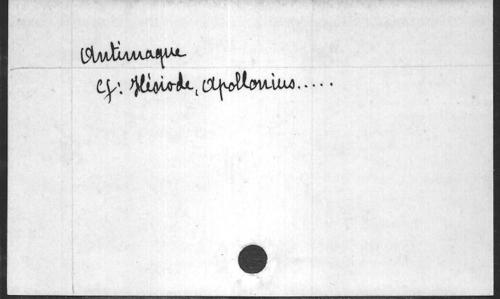 Antimaque
Cf: Hésiode, Apollonius.....